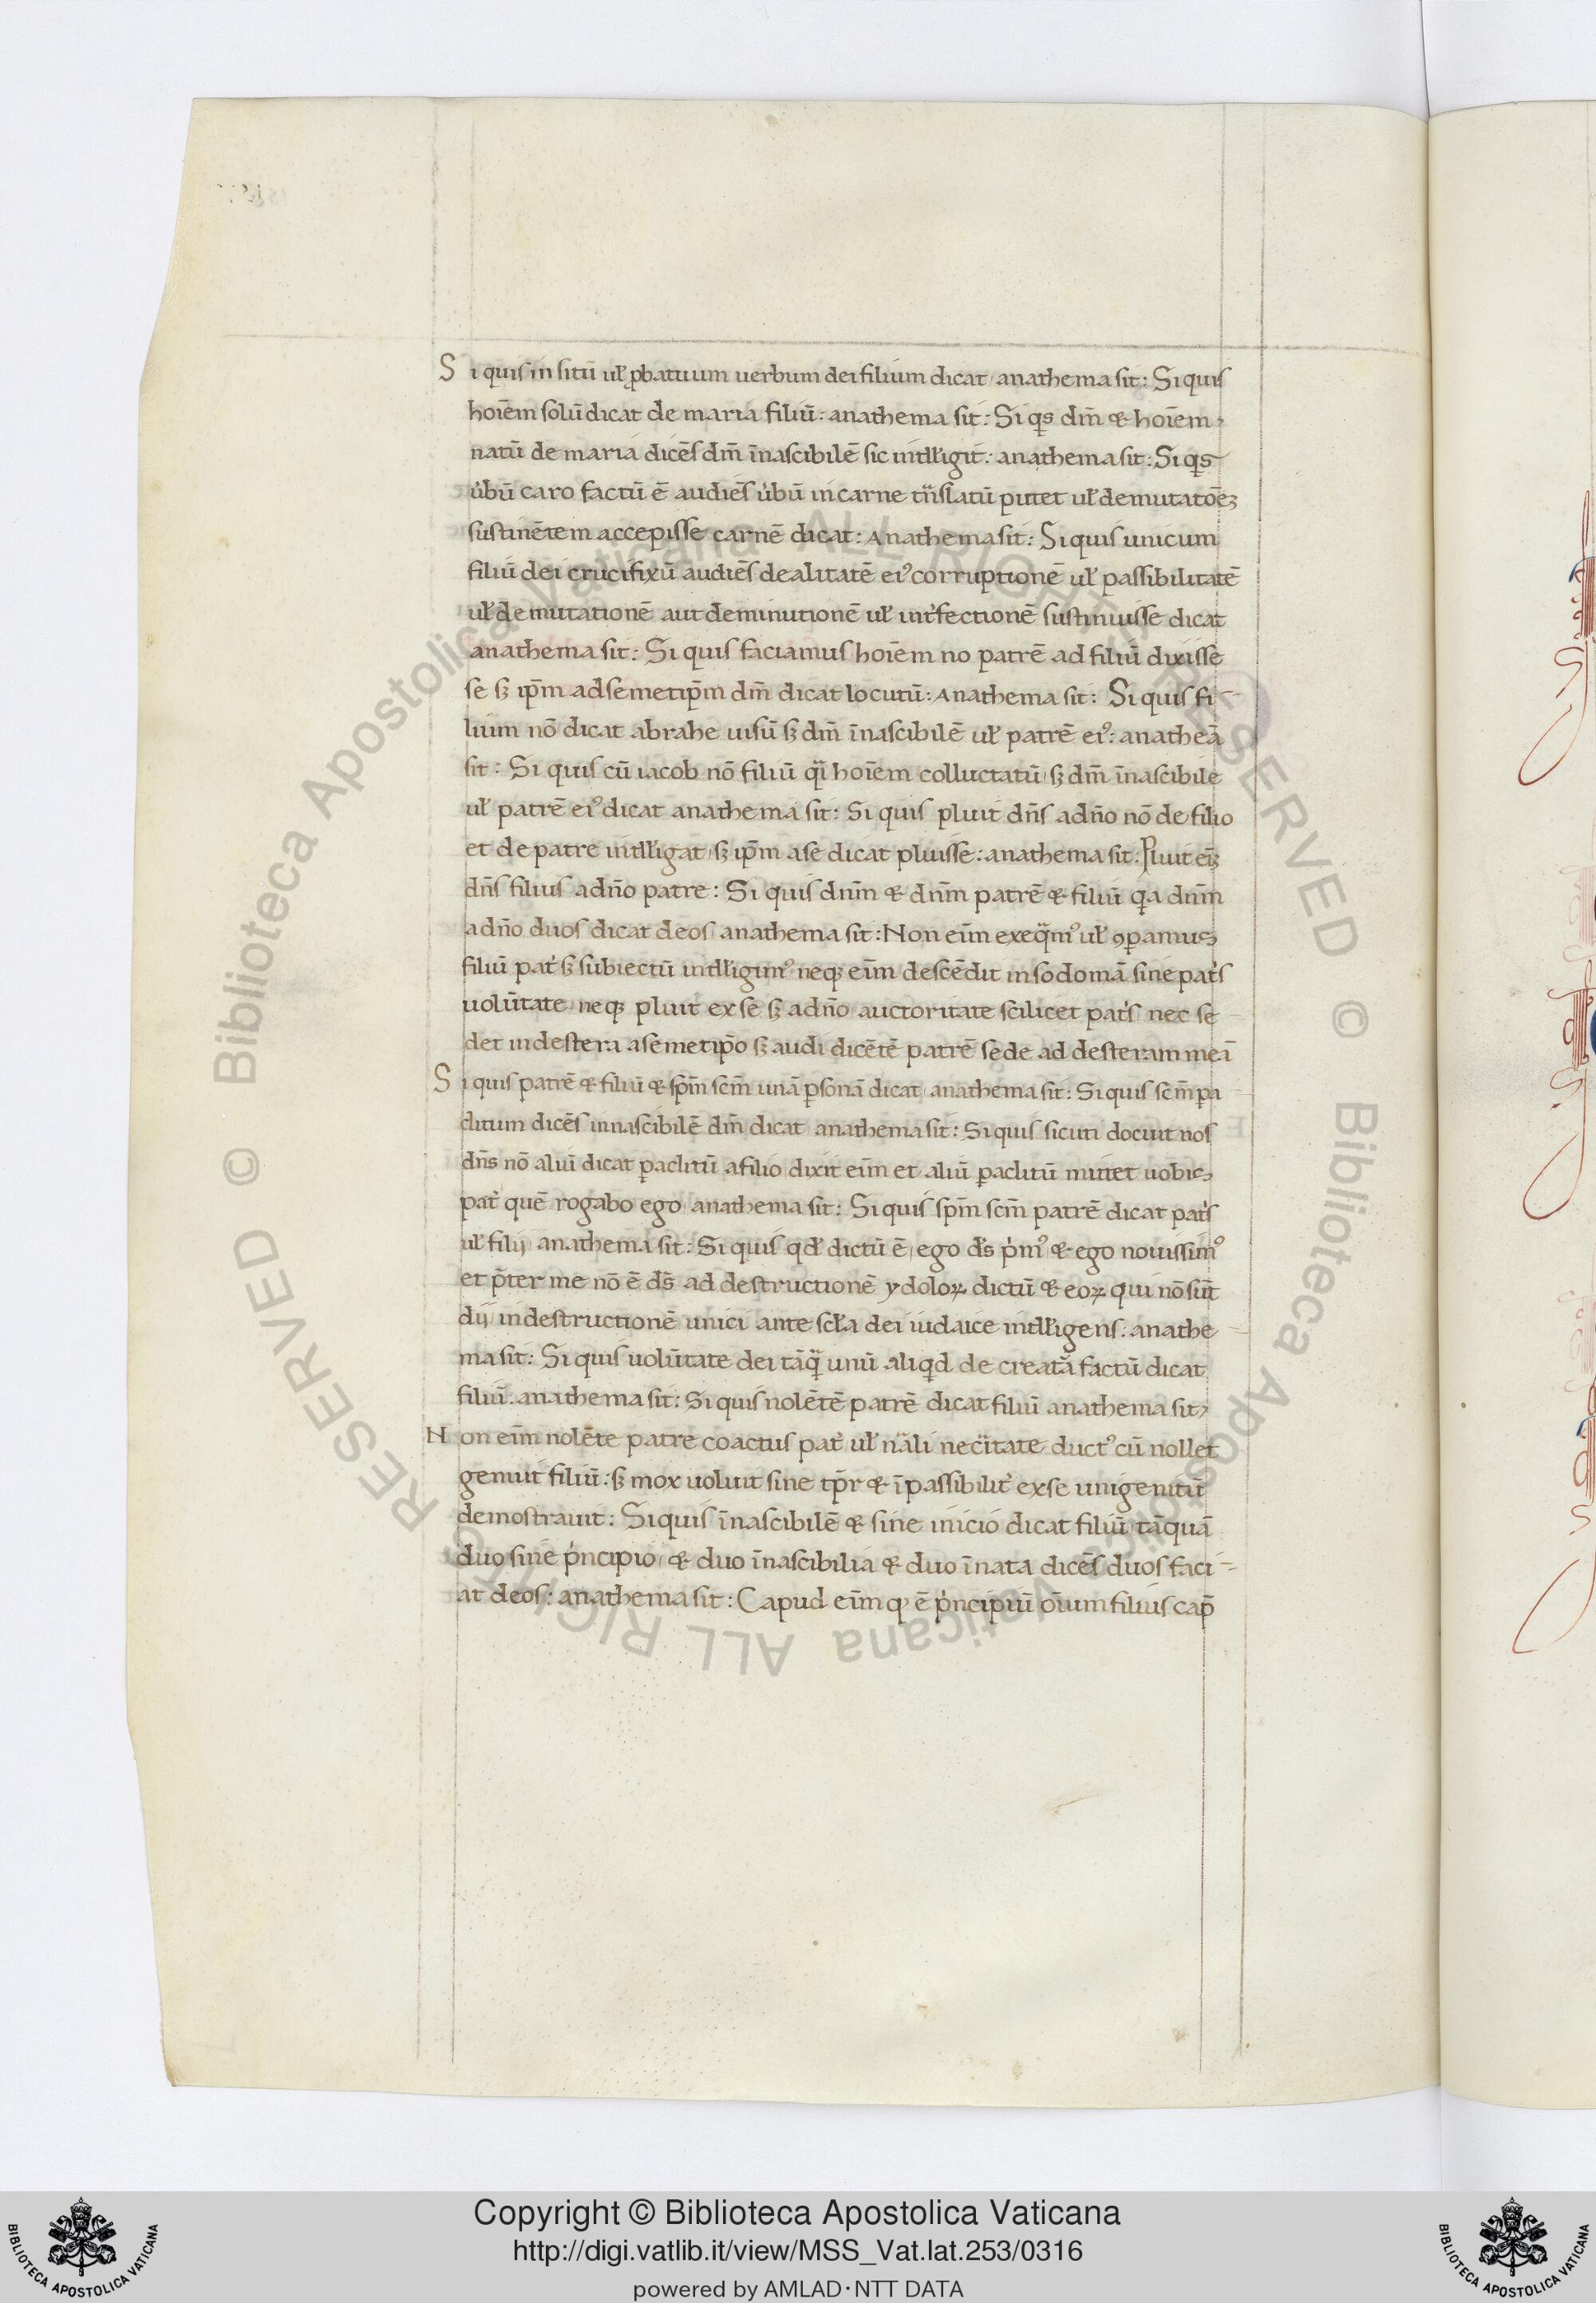 Si quis in situ͞ ul̵ ꝓbatuum uerbum dei filium dicat anathema sit: Si quis
hoı͞em solū dicat de maria filiū: anathema sit: Si qͥs dm̄ & hoı͞em
natū de maria dice͞s dm̄ ı͞nascibilē sic intll̵igit: anathema sit: Si qͥs
u̓bū caro factū ē audie͞s u̓bū in carne tn̄slatū putet ul̵ demutatōeꝫ
sustine͞tem accepisse carnē dicat: Anathema sit: Si quis unicum
filiū dei crucifixū audie͞s dealitatē eiꝰ corruptionē ul̵ passibilitatē
ul̵ demutationē aut deminutionē ul̵ int̓fectionē sustinuisse dicat
anathema sit: Si quis faciamus hoı͞em no patrē ad filiū dixisse
se sꝫ ip̄m ad semetip̄m dm̄ dicat locutū: Anathema sit: Si quis fi
lium nō dicat abrahe uisū sꝫ dm̄ ı͞nascibilē ul̵ patrē eiꝰ: anatheā
sit: Si quis cū iacob nō filiū qͣi hoı͞em colluctatū sꝫ dm̄ ı͞nascibilē
ul̵ patrē eiꝰ dicat anathema sit: Si quis pluit dn̄s adn̄o nō de filio
et de patre intll̵igat sꝫ ip̄m a se dicat pluisse: anathema sit: Pluit
dn̄s filius adn̄o patre: Si quis dnm̄ & dnm̄ patrē & filiū qͥa dnm̄
adn̄o duos dicat deos anathema sit: Non eı͞m exeqͣmꝰ ul̵ ꝯꝑamus
filiū pat̓ sꝫ subiectū intll̵igimꝰ neqꝫ eı͞m descēdit in sodomā sine pat̓s
volūtate neqꝫ pluit ex se sꝫ adn̄o auctoritate scilicet pat̓s nec se
det in destera a semetip̄o sꝫ audi dicētē patrē sede ad desteram meā
Si quis patrē & filiū & sp̄m scm̄ unā ꝑsonā dicat anathema sit: Si quis scm̄ ꝑa
clitum dice͞s innascibilē dm̄ dicat anathema sit: Si quis sicuti docuit nos
dn̄s nō aliū dicat ꝑaclitū a filio dixit eı͞m et aliū ꝑaclitū mittet uobis
pat̓ quē rogabo ego anathema sit: Si quis sp̄m scm̄ patrē dicat pat̓s
ul̵ filij anathema sit: Si quis qd̵ dictū ē ego ds̄ pͥmꝰ & ego nouissimꝰ
et p̄ter me nō ē ds̄ ad destructionē ydoloꝝ dictū & eoꝝ qui nō sūt
dij in destructionē unici ante scl̵a dei iudaice intll̵igens: anathe
ma sit: Si quis uolūtate dei tāqͣ unū aliqͥd de creatͣa factū dicat
filiū: anathema sit: Si quis nolētē patrē dicat filiū anathema sit
Non eı͞m nolēte patre coactus pat̓ ul̵ nͣali necı͞tate ductꝰ cū nollet
genuit filiū: sꝫ mox uoluit sine tp̄r & ı͞passibilit̓ ex se unigenitū
demostrauit: Si quis ı͞nascibilē & sine inicio dicat filiū tāquā
duo sine pͥncipio & duo ı͞nascibilia & duo ı͞nata dice͞s duos faci
at deos: anathema sit: Capud eı͞m qͩ ē pͥncipiū oı͞um filius cap̄
© Biblioteca Apostolica Vaticana ALL RIGHTS RESERVED © Biblioteca Apostolica Vaticana ALL RIGHTS RESERVED
Copyright © Biblioteca Apostolica Vaticana
http://digi.vatlib.it/view/MSS_Vat.lat.253/0316
powered by AMLAD·NTT DATA
BIBLIOTECA APOSTOLICA VATICANA
BIBLIOTECA APOSTOLICA VATICANA